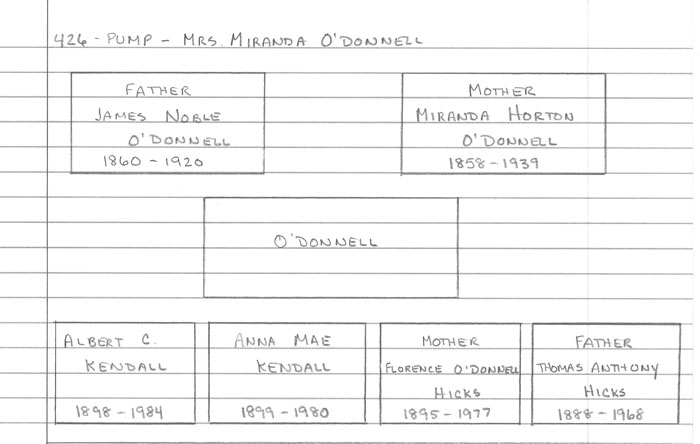 426 - PUMP - MRS. MIRANDA O'DONNELL
FATHER
JAMES NOBLE
O'DONNELL
1860 - 1920
MOTHER
MIRANDA HORTON
O'DONNELL
1858 - 1939
O'DONNELL
ALBERT C.
KENDALL
1898 - 1984
ANNA MAE
KENDALL
1899 - 1980
MOTHER
FLORENCE O'DONNELL
HICKS
1895 - 1977
FATHER
THOMAS ANTHONY
HICKS
1888 - 1968